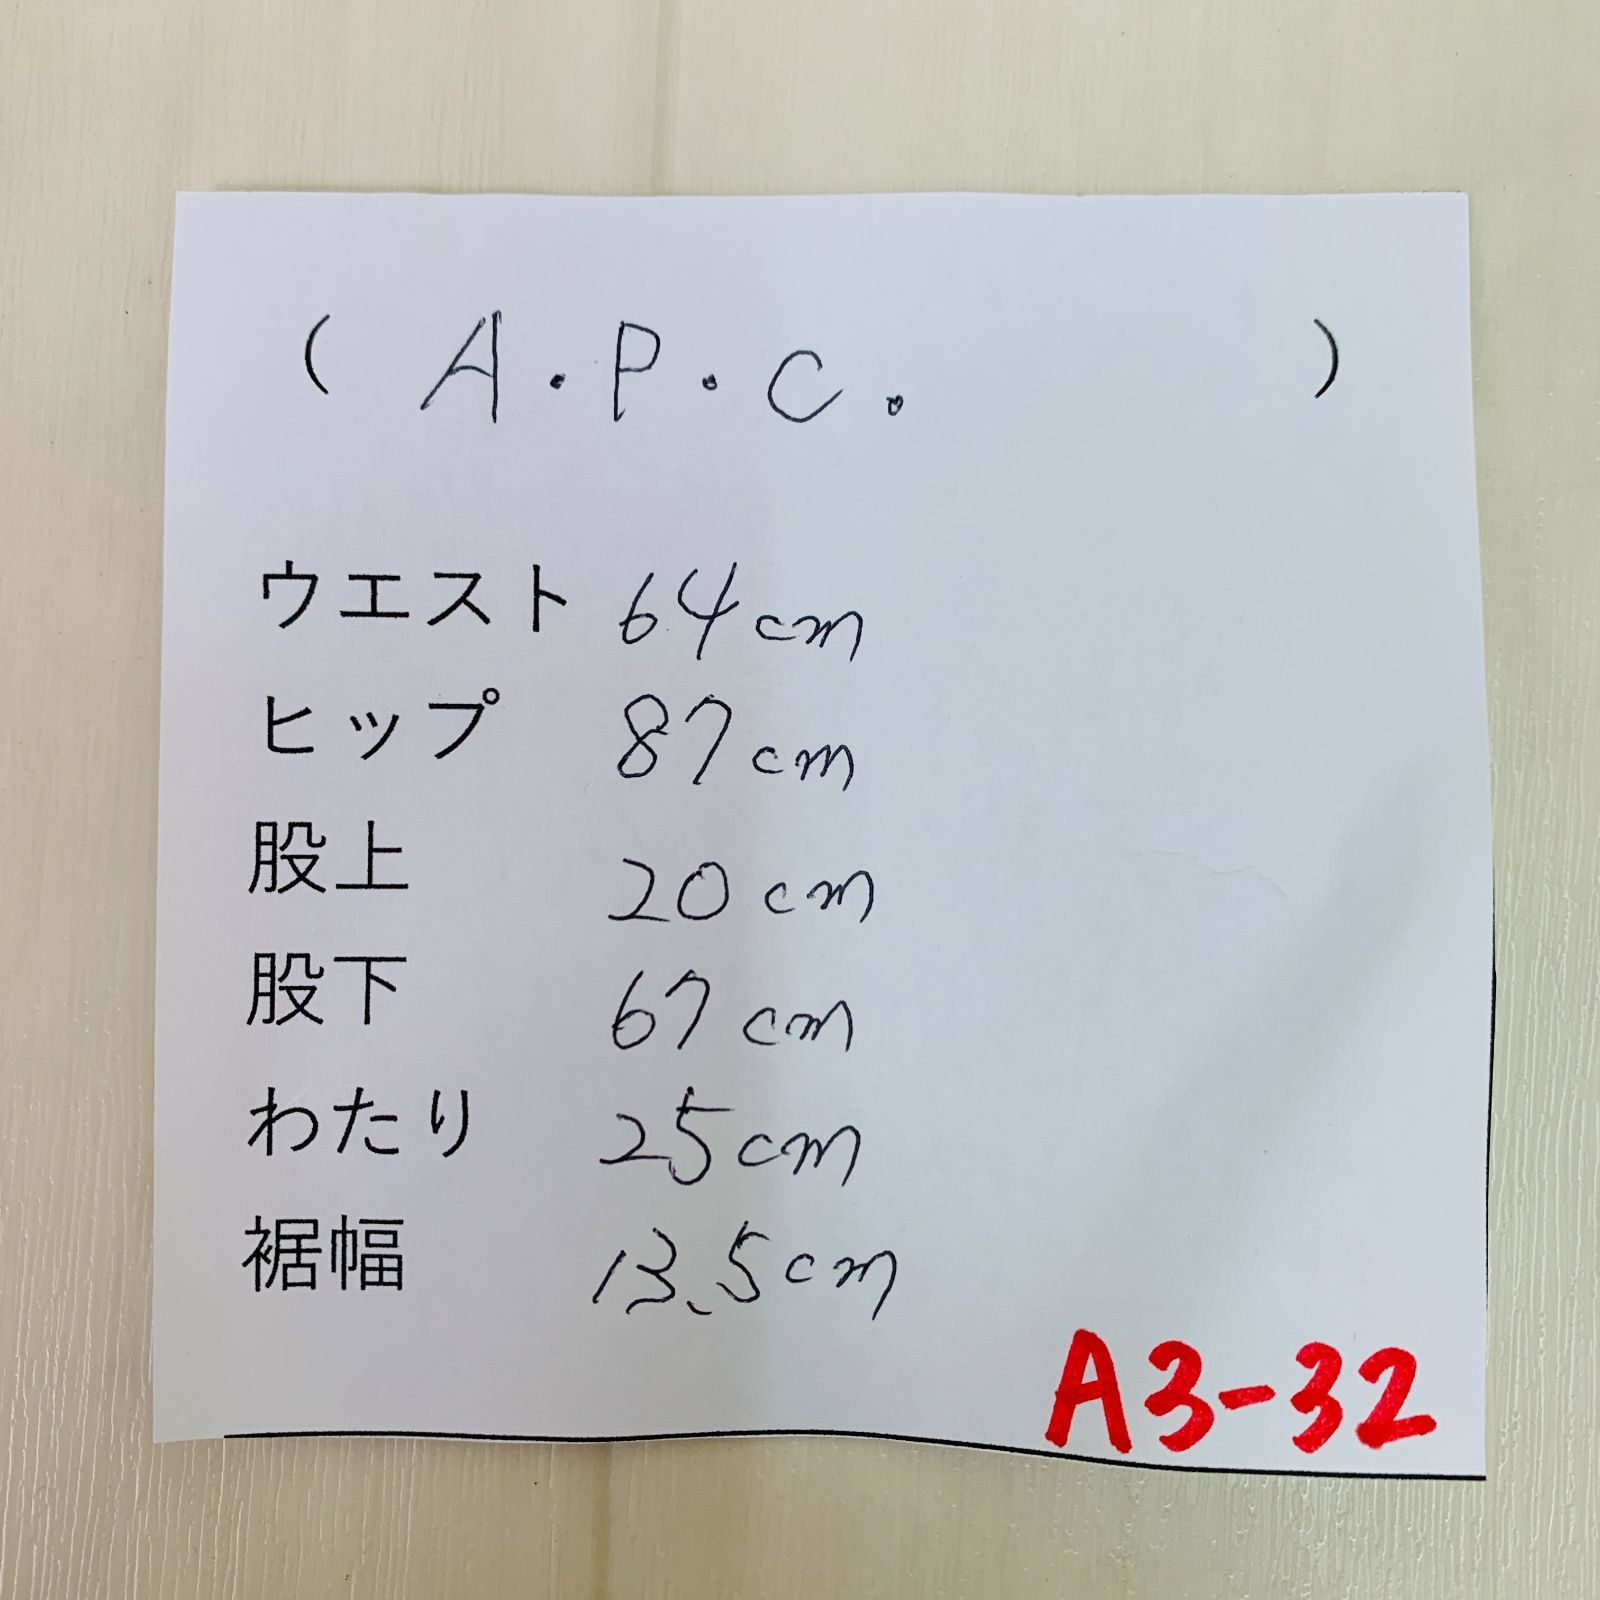 ( A.P.C. )
ウエスト 64cm
ヒップ 87cm
股上 20cm
股下 67cm
わたり 25cm
裾幅 13.5cm
A3-32